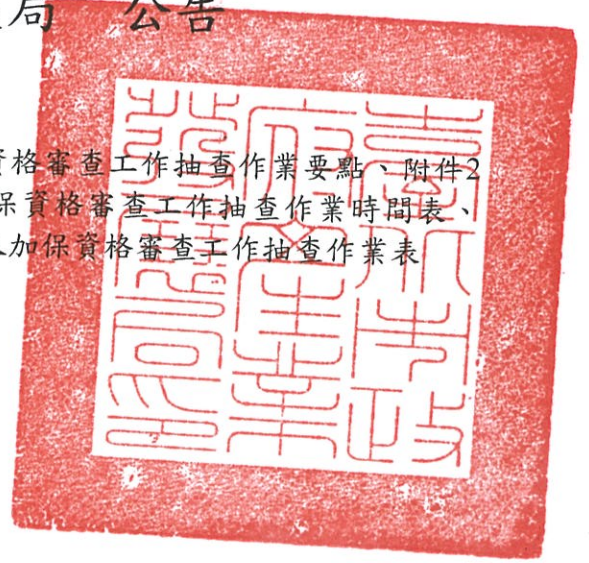 局 公告
資格審查工作抽查作業要點、附件2
保資格審查工作抽查作業時間表、
加保資格審查工作抽查作業表
臺北市政
府產業
發展局印